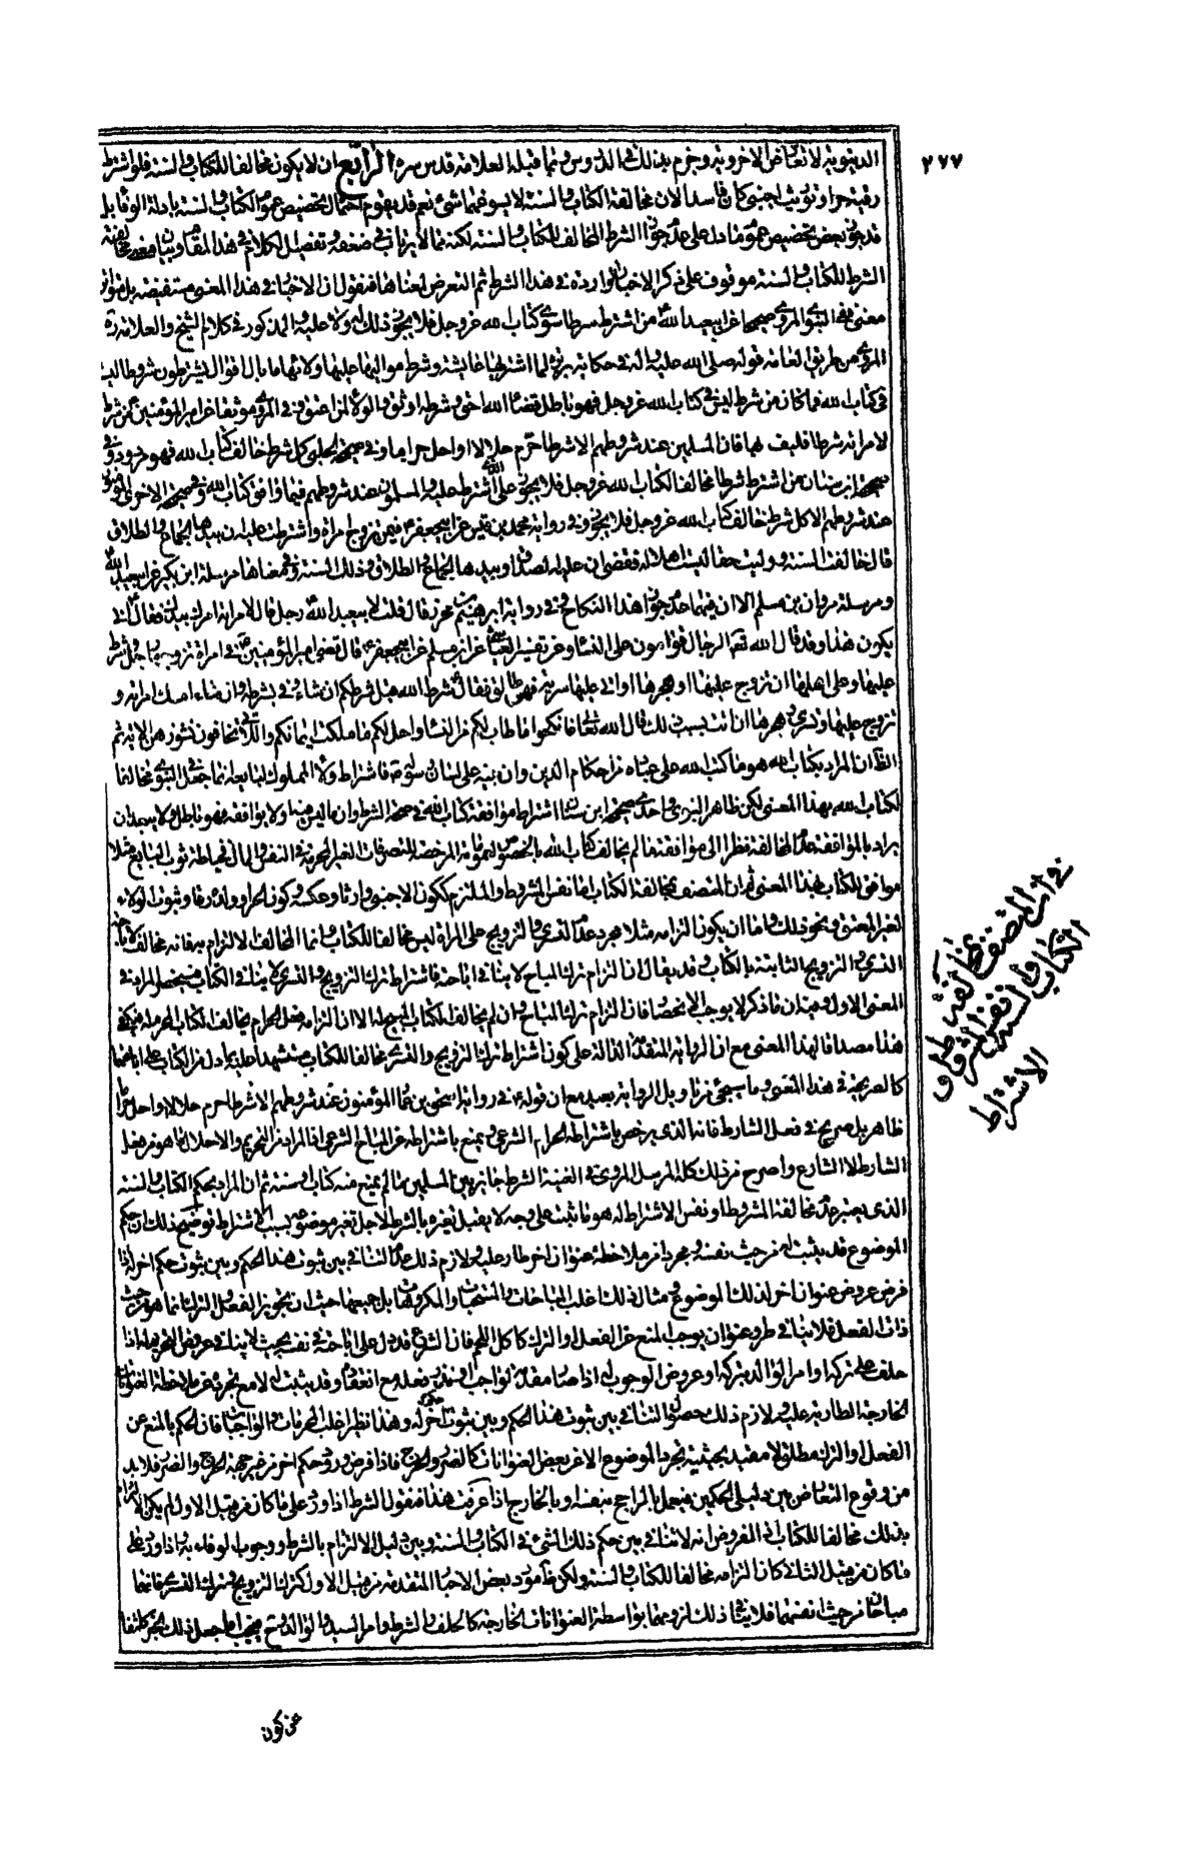 ٢٧٧
الدنيوية لا تعاض الاخروية وجزم بذلك في الدروس وبما قبله العلامة قدس سره الرابع ان لا يكون مخالفا للكتاب والسنة فلو اشترط
رقية حر او توريث اجنبي كان فاسدا لان مخالفة الكتاب والسنة لا يسوغهما شئ نعم قد يقوم احتمال تخصيص عموم الكتاب والسنة بادلة الوفاء بل
قد جوز بعض تخصيص عموم ما دل على عدم جواز الشرط المخالف للكتاب والسنة لكنه مما لا يرتاب في ضعفه وتفصيل الكلام في هذا المقام وبيان معنى مخالفة
الشرط للكتاب والسنة موقوف على ذكر الاخبار الواردة في هذا الشرط ثم التعرض لمعناها فنقول ان الاخبار في هذا المعنى مستفيضة بل متواترة
معنى ففي النبوي المروي صحيحا عن ابيعبد الله ع من اشترط شرطا سوى كتاب الله عز وجل فلا يجوز ذلك له ولا عليه والمذكور في كلام الشيخ والعلامة ره
المروي من طريق العامة قوله صلى الله عليه واله في حكاية بريرة لما اشترتها عايشة وشرط مواليها عليها ولائها ما بال اقوال يشترطون شروطا ليست
في كتاب الله فما كان من شرط ليس في كتاب الله عز وجل فهو باطل قضاء الله احق وشرطه اوثق والولاء لمن اعتق وفي المروي موثقا عن امير المؤمنين ع من شرط
لامراته شرطا فليف لها فان المسلمين عند شروطهم الا شرطا حرم حلالا او احل حراما وفي صحيحة الحلبي كل شرط خالف كتاب الله فهو مردود وفي
صحيحة ابن سنان من اشترط شرطا مخالفا لكتاب الله عز وجل فلا يجوز على الذي اشترط عليه والمسلمون عند شروطهم فيما وافق كتاب الله وفي صحيحته الاخرى المؤمنون
عند شروطهم الا كل شرط خالف كتاب الله عز وجل فلا يجوز وفي رواية محمد بن قيس عن ابيجعفر ع فيمن تزوج امراة واشترطت عليه ان بيدها الجماع والطلاق
قال خالفت السنة ووليت حقا ليست اهلا له فقضى ان عليه الصداق وبيده الجماع والطلاق وذلك السنة وفي معناها مرسلة ابن بكير عن ابيعبد الله ع
ومرسلة مروان بن مسلم الا ان فيهما عدم جواز هذا النكاح وفي رواية ابرهيم بن محرز قال قلت لابيعبد الله ع رجل قال لامراته امرك بيدك فقال ع انى
يكون هذا وقد قال الله تعم الرجال قوامون على النساء وعن تفسير العياشي عن ابن مسلم عن ابيجعفر ع قال قضى امير المؤمنين ع في امراة تزوجها رجل وشرط
عليها وعلى اهلها ان تزوج عليها او هجرها او اتى عليها سرية فهي طالق فقال ع شرط الله قبل شرطكم ان شاء وفى بشرطه وان شاء امسك امراته و
تزوج عليها وتسرى وهجرها ان اتت بسبب ذلك قال الله تعالى فانكحوا ما طاب لكم من النساء واحل لكم ما ملكت ايمانكم واللاتي تخافون نشوزهن الاية ثم
الظ ان المراد بكتاب الله هو ما كتب الله على عباده من احكام الدين وان بينه على لسان رسوله ص فاشتراط ولاء المملوك لبايعه انما جعل في النبوي مخالفا
لكتاب الله بهذا المعنى لكن ظاهر النبوي واحدى صحيحتي ابن سنان اشتراط موافقة كتاب الله في صحة الشرط وان ما ليس فيه او لا يوافقه فهو باطل ولا يبعد ان
يراد بالموافقة عدم المخالفة نظرا الى موافقة ما لم يخالف كتاب الله بالخصوص لعموماته المرخصة للتصرفات الغير المحرمة في النفس والمال فخياطة ثوب البايع مثلا
موافق للكتاب بهذا المعنى ثم ان المتصف بمخالفة الكتاب اما نفس المشروط والملتزم ككون الاجنبي وارثا وعكسه وكون الحر او ولده رقا وثبوت الولاء
لغير المعتق ونحو ذلك واما ان يكون التزامه مثلا مجرد عدم التسري والتزويج على المراة ليس مخالفا للكتاب وانما المخالف الالتزام به فانه مخالف لاباحة
التسري والتزويج الثابتة بالكتاب وقد يقال ان التزام ترك المباح لا ينافي اباحته فاشتراط ترك التزويج والتسري لا ينافي الكتاب فينحصر المراد في
المعنى الاول وفيه ان ما ذكر لا يوجب الانحصار فان التزام ترك المباح وان لم يخالف الكتاب المبيح له الا ان التزام فعل الحرام يخالف الكتاب المحرم له فيكفي
هذا مصداقا لهذا المعنى مع ان الرواية المتقدمة الدالة على كون اشتراط ترك التزويج والتسري مخالفا للكتاب مستشهدا عليه بما دل من الكتاب على اباحتهما
كالصريحة في هذا المعنى وما سيجئ من تاويل الرواية بعيد مع ان قوله ع في رواية اسحق بن عمار المؤمنون عند شروطهم الا شرطا حرم حلالا او احل حراما
ظاهر بل صريح في فعل الشارط فانه الذي يرخص باشتراطه الحرام الشرعي ويمنع باشتراطه عن المباح الشرعي اذ المراد من التحريم والاحلال ما هو من فعل
الشارط لا الشارع واصرح من ذلك كله المرسل المروي في الغنية الشرط جايز بين المسلمين ما لم يمنع منه كتاب او سنة ثم ان المراد بحكم الكتاب والسنة
الذي يعتبر عدم مخالفة المشروط او نفس الاشتراط له هو ما ثبت على وجه لا يقبل تغيره بالشرط لاجل تغير موضوعه بسبب الاشتراط توضيح ذلك ان حكم
الموضوع قد يثبت له من حيث نفسه ومجردا عن ملاحظة عنوان اخر طار عليه ولازم ذلك عدم التنافي بين ثبوت هذا الحكم وبين ثبوت حكم اخر له اذا
فرض عروض عنوان اخر لذلك الموضوع ومثال ذلك اغلب المباحات والمستحبات والمكروهات بل جميعها حيث ان تجويز الفعل والترك انما هو من حيث
ذات الفعل فلا ينافي طرو عنوان يوجب المنع عن الفعل او الترك كاكل اللحم فان الشرع قد دل على اباحته في نفسه بحيث لا ينافي عروض التحريم له اذا
حلف على تركه او امر الوالد بتركه او عروض الوجوب له اذا صار مقدمة لواجب او نذر فعله مع انعقاده وقد يثبت له لا مع تجرده عن ملاحظة العنوانات
الخارجة الطارية عليه ولازم ذلك حصول التنافي بين ثبوت هذا الحكم وبين ثبوت حكم اخر له وهذا نظير اغلب المحرمات والواجبات فان الحكم بالمنع عن
الفعل او الترك مطلق لا مقيد بحيثية تجرد الموضوع الا عن بعض العنوانات كالضرر والحرج فاذا فرض ورود حكم اخر من غير جهة الحرج والضرر فلا بد
من وقوع التعارض بين دليلي الحكمين فيعمل بالراجح بنفسه او بالخارج اذا عرفت هذا فنقول الشرط اذا ورد على ما كان من قبيل الاول لم يكن الالتزام
بذلك مخالفا للكتاب اذ المفروض انه لا تنافي بين حكم ذلك الشئ في الكتاب والسنة وبين دليل الالتزام بالشرط ووجوب الوفاء به واذا ورد على
ما كان من قبيل الثاني كان التزامه مخالفا للكتاب والسنة ولكن ظاهر مورد بعض الاخبار المتقدمة من قبيل الاول كترك التزويج وترك التسري فانهما
مباحان من حيث انفسهما فلا ينافي ذلك لزومهما بواسطة العنوانات الخارجة كالحلف والشرط وامر السيد والوالد وح فيجب اما جعل ذلك الخبر كاشفا
في ان المتصف بمخالفة
الكتاب والسنة اما
نفس المشروط او
الاشتراط
عن كون